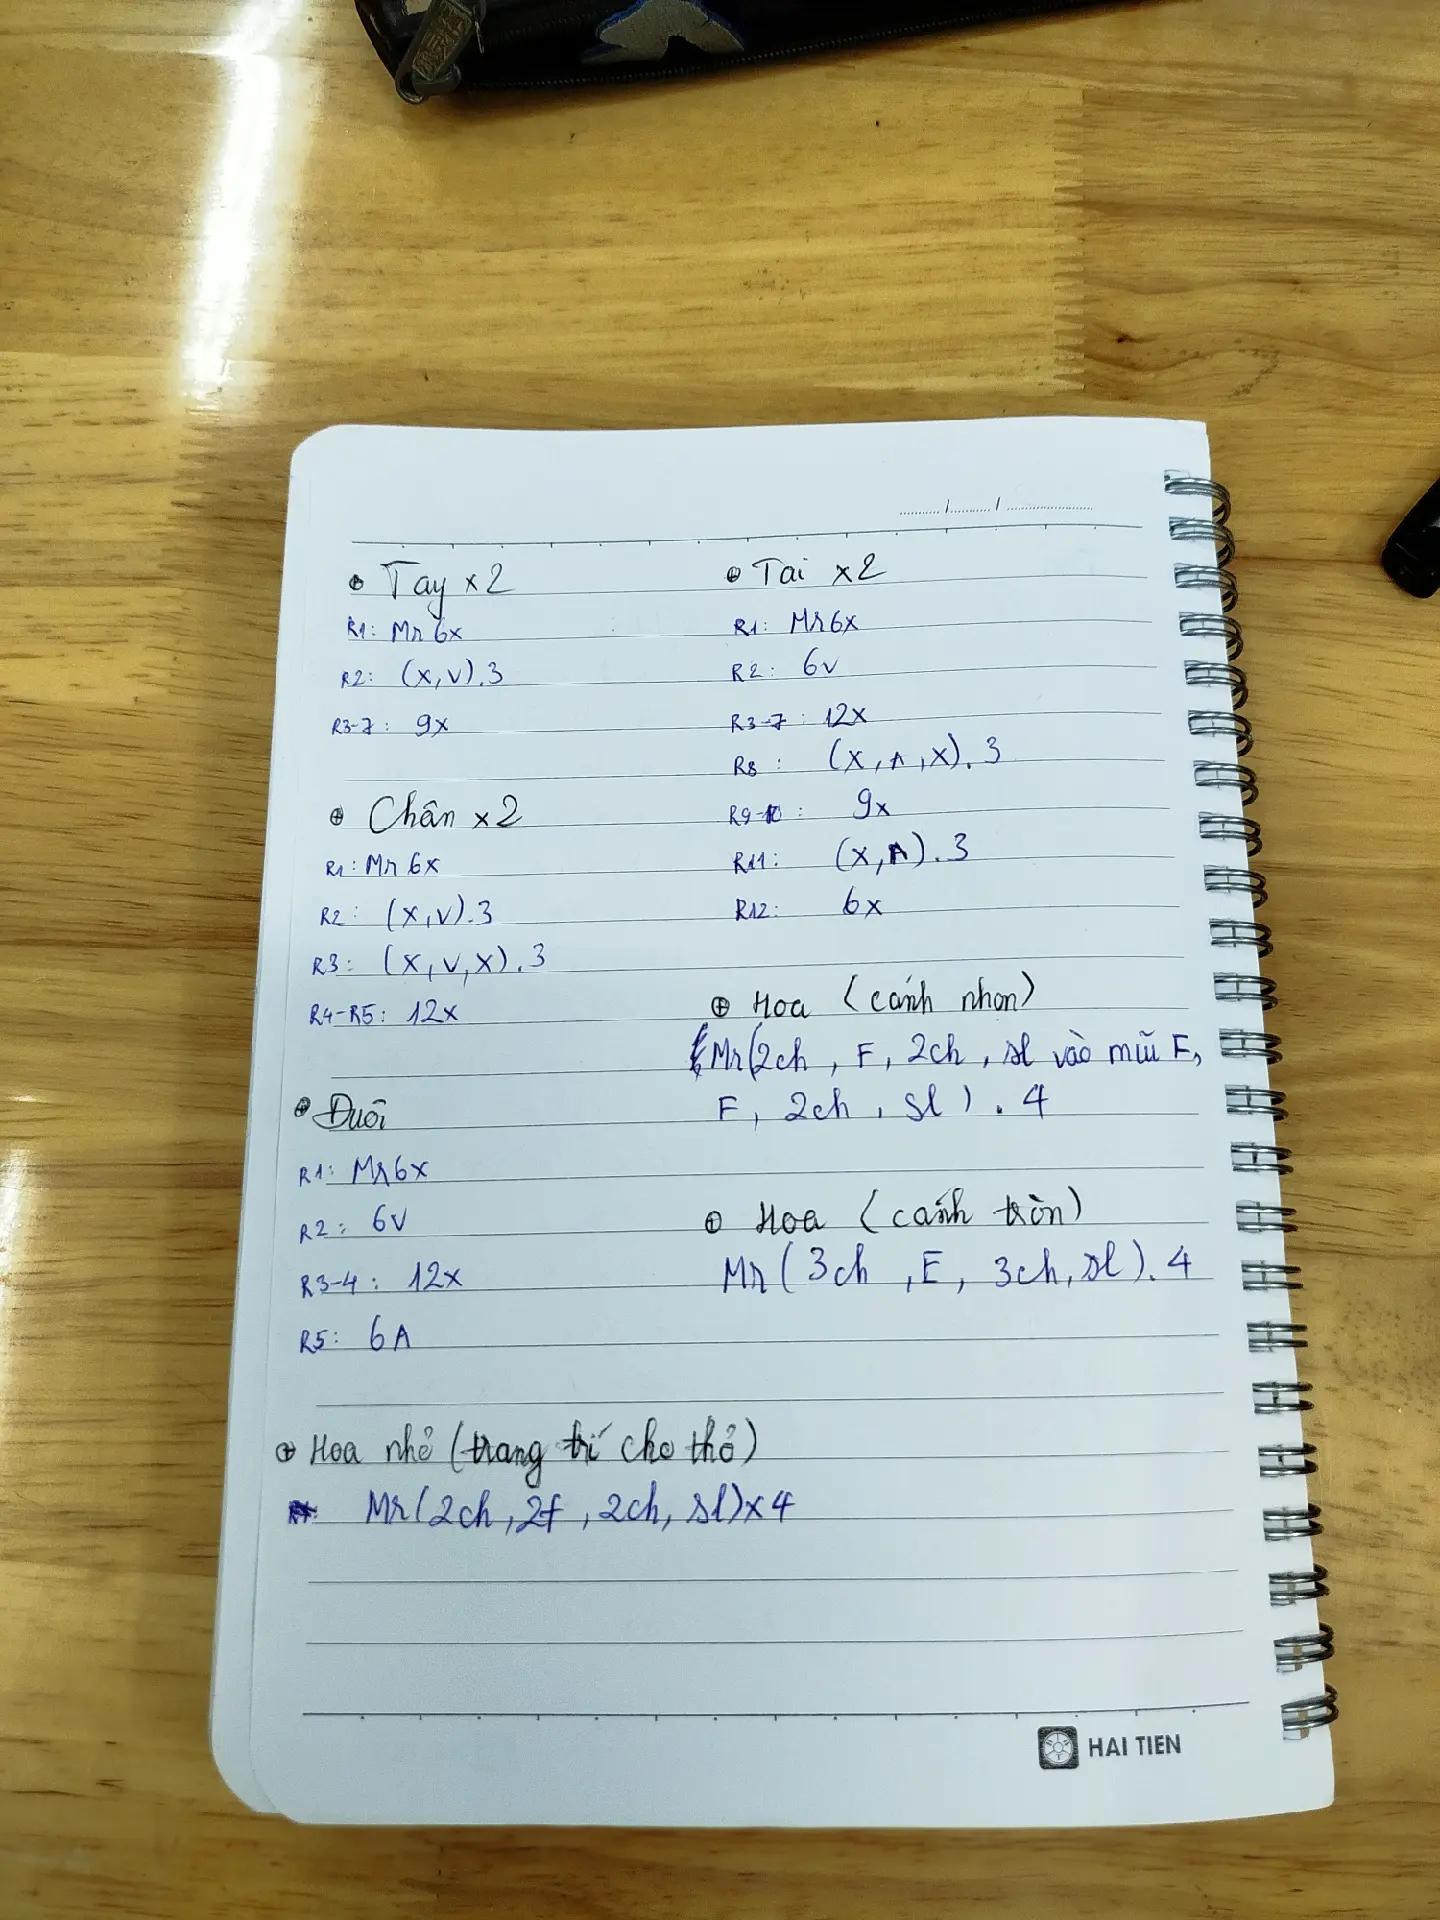 ⊕ Tay x2
R1: Mr 6x
R2: (x,v).3
R3-7: 9x
⊕ Chân x2
R1: Mr 6x
R2: (x,v).3
R3: (x,v,x).3
R4-R5: 12x
⊕ Đuôi
R1: Mr6x
R2: 6v
R3-4: 12x
R5: 6A
⊕ Hoa nhỏ (trang trí cho thỏ)
Mr(2ch,2f,2ch,sl)x4
⊕ Tai x2
R1: Mr6x
R2: 6v
R3-7: 12x
R8: (x,A,x).3
R9-10: 9x
R11: (x,A).3
R12: 6x
⊕ Hoa (cánh nhọn)
Mr(2ch, F, 2ch, sl vào mũi F,
F, 2ch, sl).4
⊕ Hoa (cánh tròn)
Mr(3ch, E, 3ch,sl).4
HAI TIEN